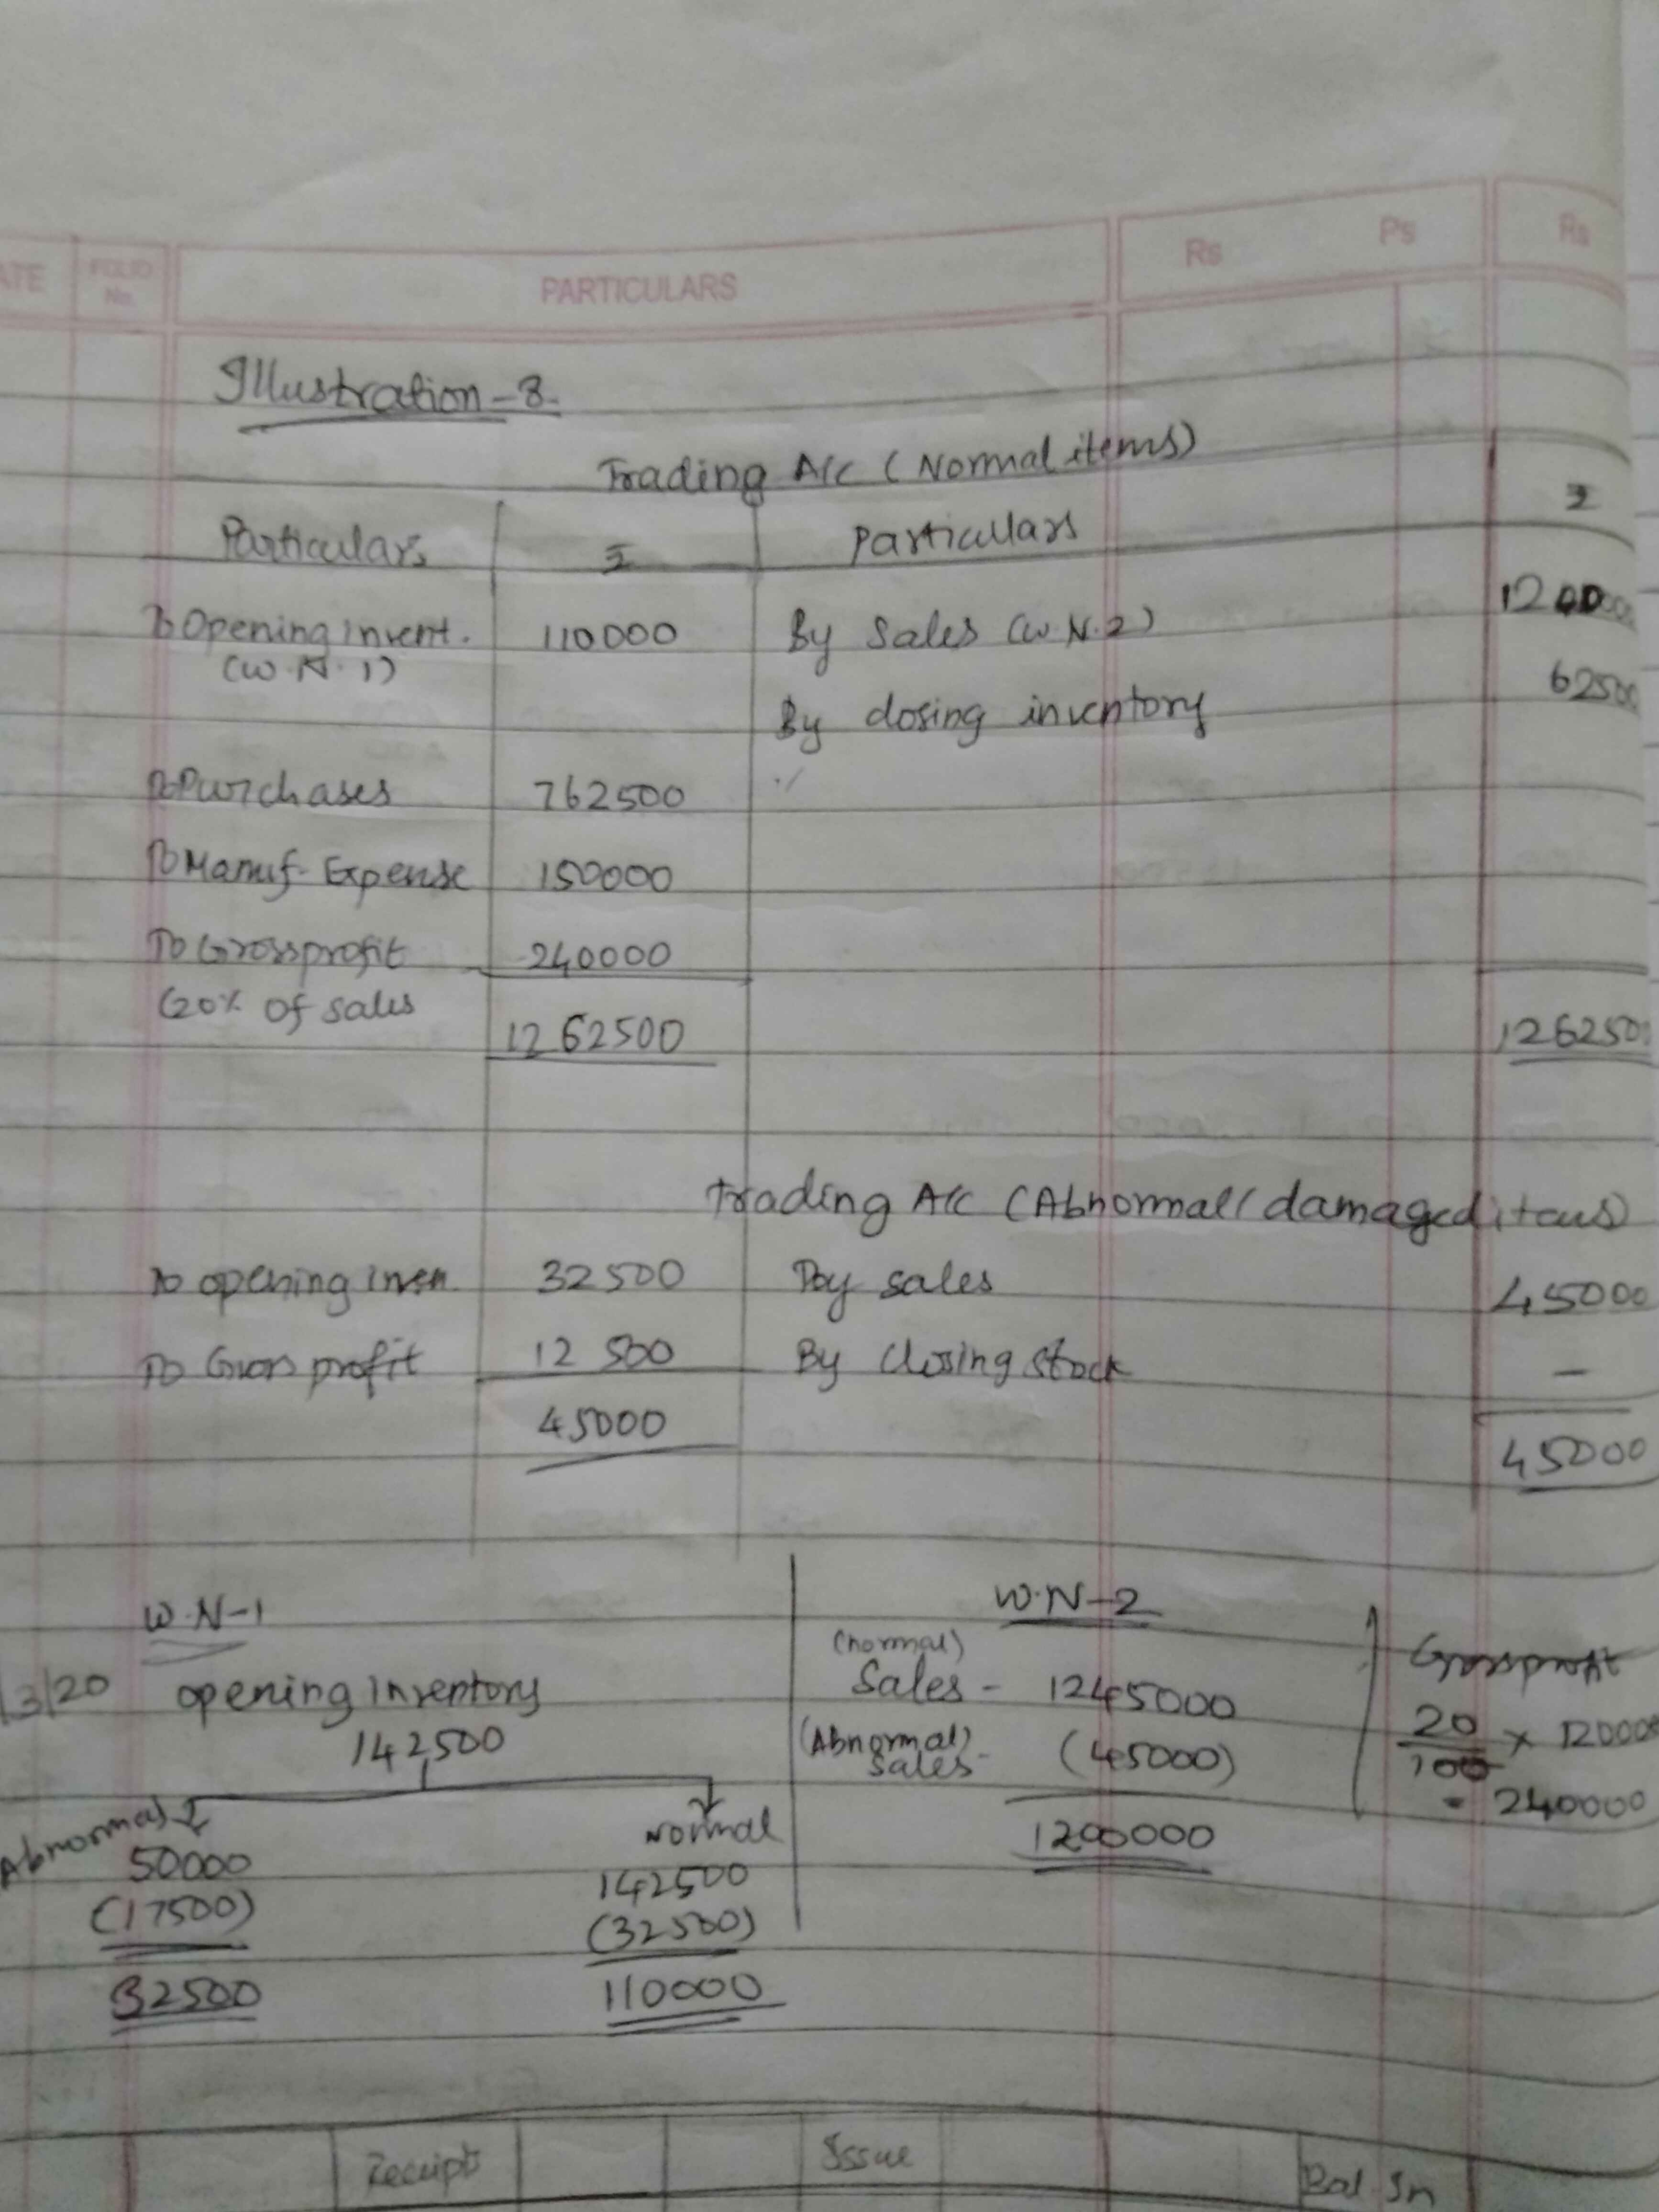 ATE FOLIO No. PARTICULARS Rs Ps Rs
Illustration-8.
Trading A/c (Normal items)
Particulars ₹ Particulars ₹
To Opening invent. 110000 By Sales (W.N.2) 1200000
(W.N.1)
By closing inventory 62500
To Purchases 762500
To Manuf. Expense 150000
To Gross profit 240000
(20% of sales
1262500 1262500
Trading A/c (Abnormal/damaged items)
To opening inven. 32500 By sales 45000
To Gross profit 12500 By Closing stock -
45000 45000
W.N-1
W.N-2
3/20 opening inventory
142500
Abnormal Normal
50000 142500
(17500) (32500)
32500 110000
(normal)
Sales - 1245000
(Abnormal)
Sales - (45000)
1200000
Gross profit
20/100 × 120000
= 240000
Receipts Issue Bal. In